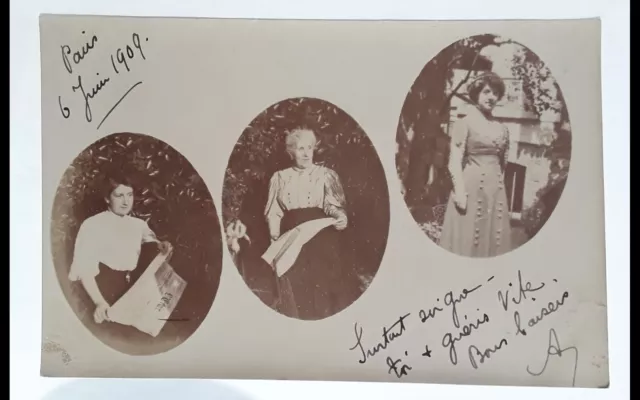 Paris
6 Juin 1909.
Surtout soigne-
toi & guéris vite
Bons baisers.